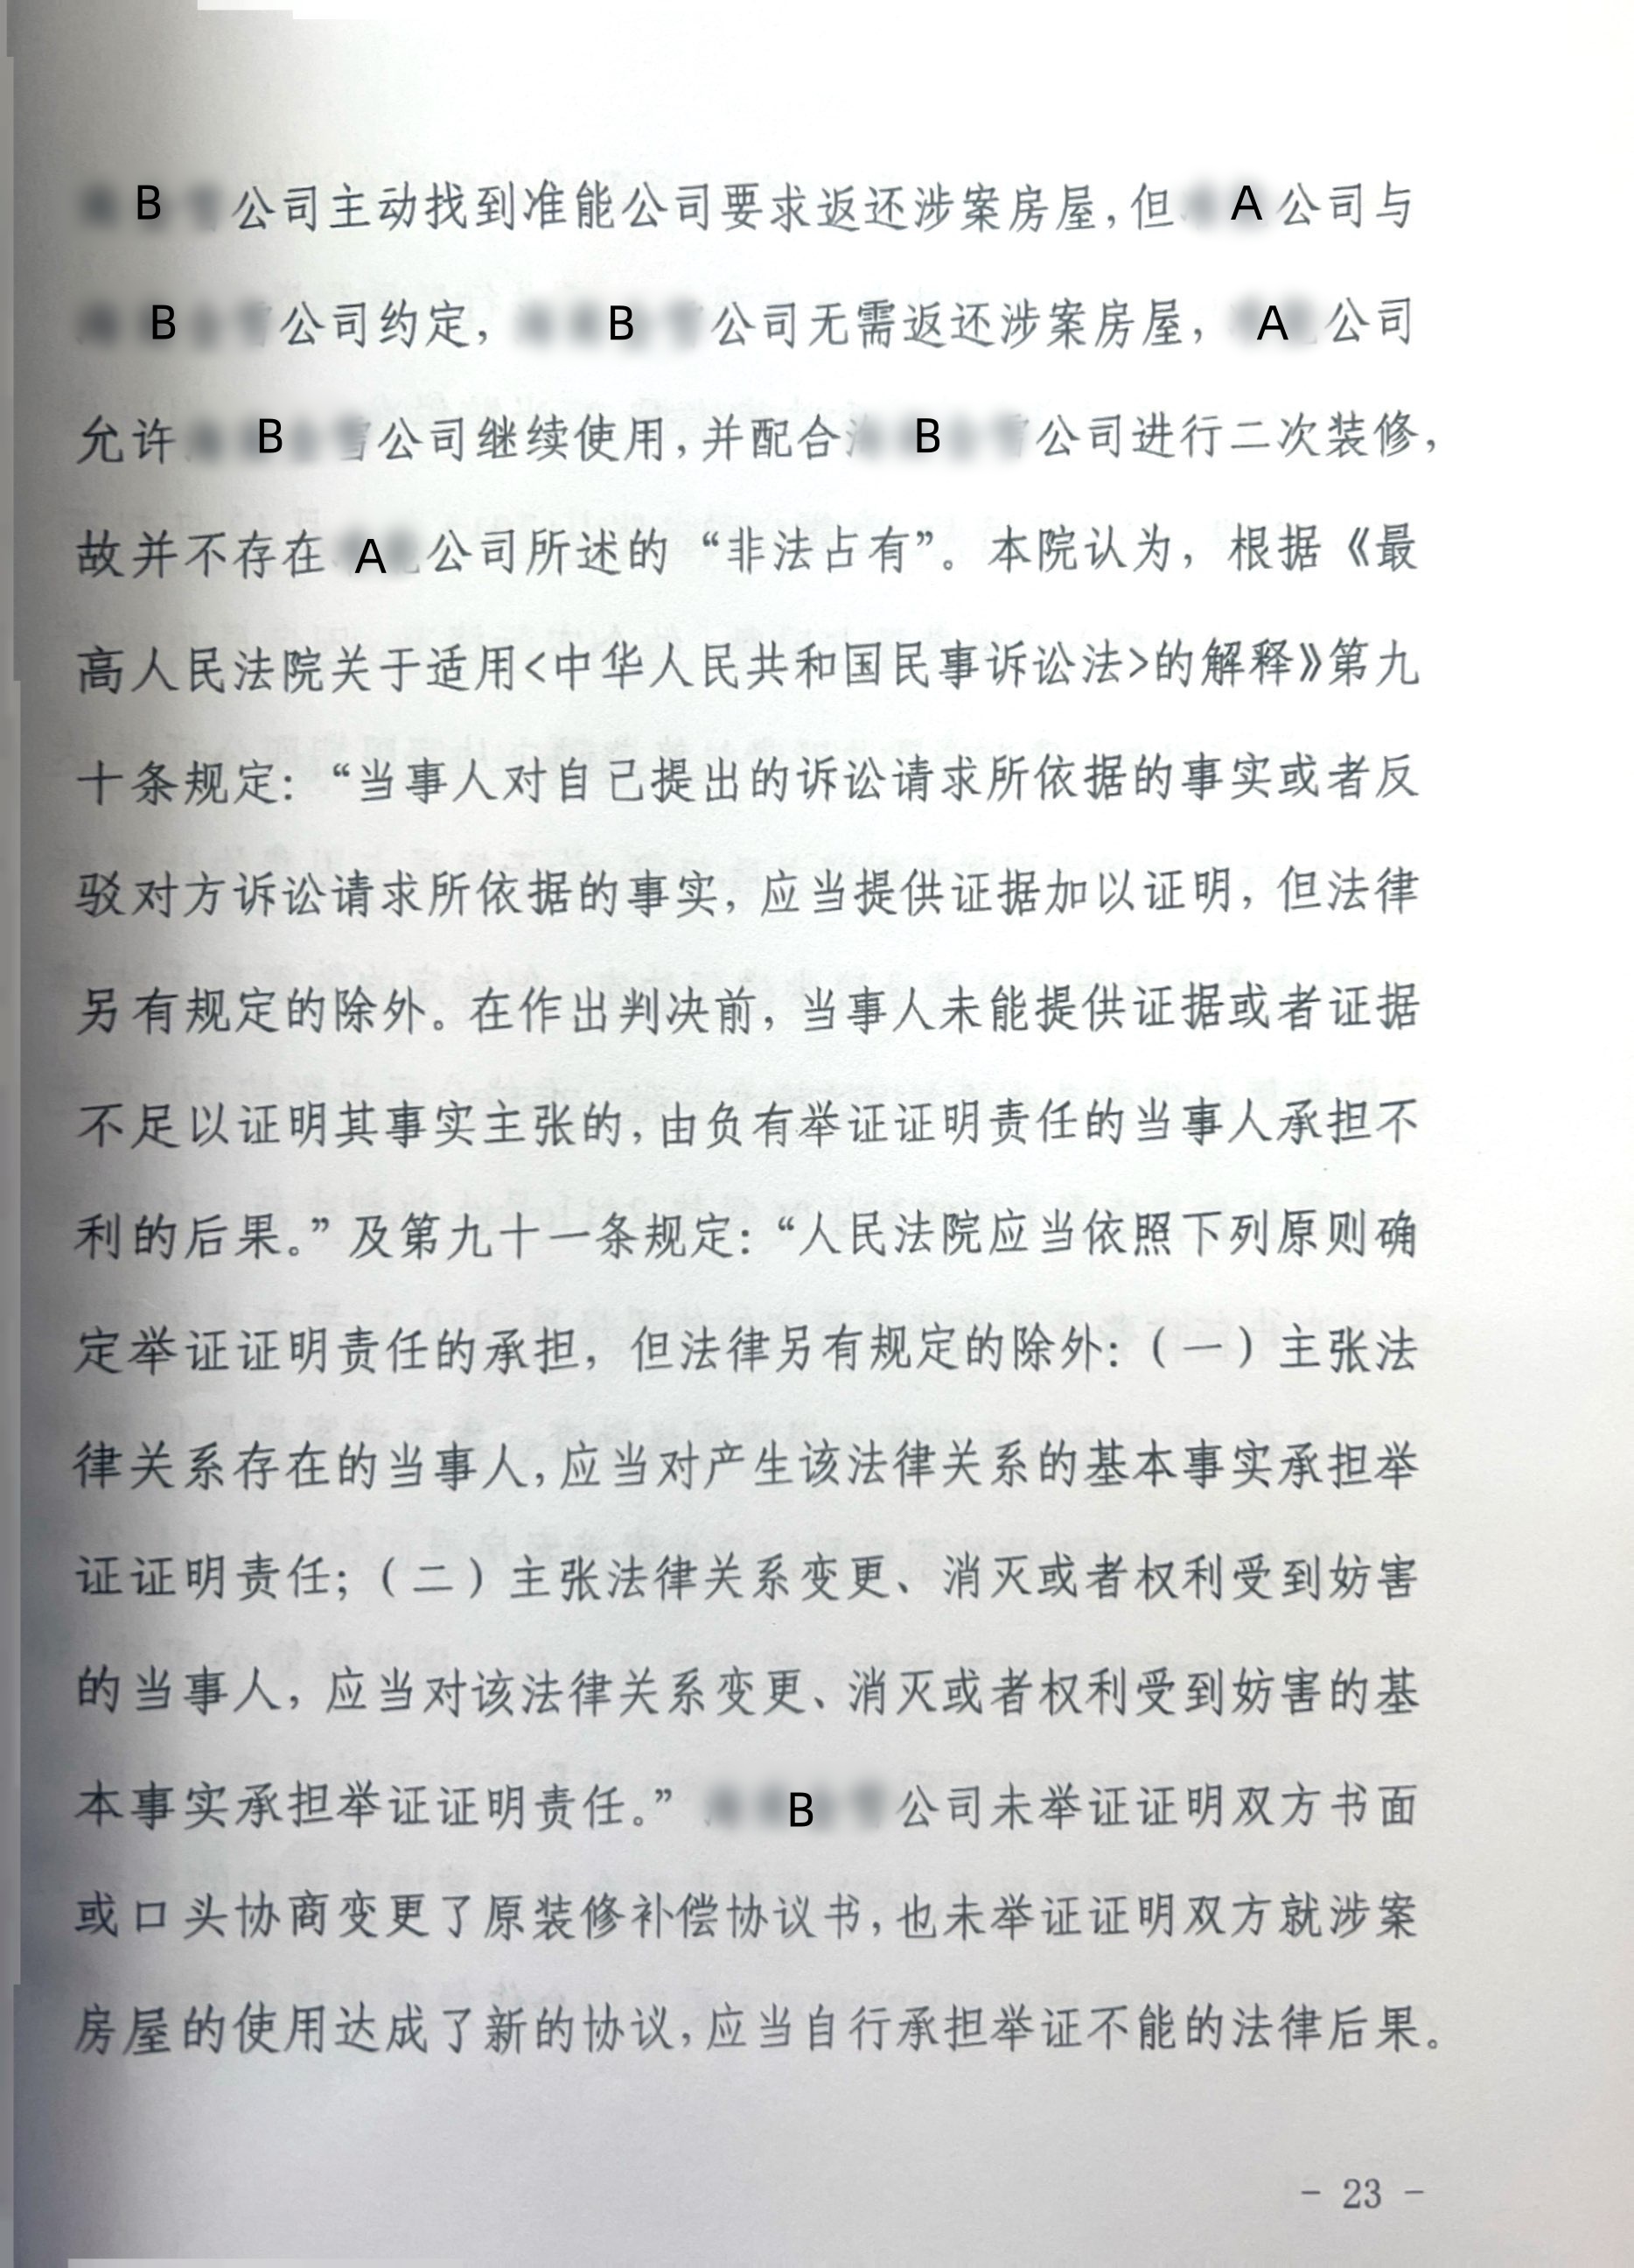 B公司主动找到准能公司要求返还涉案房屋,但A公司与
B公司约定,B公司无需返还涉案房屋,A公司
允许B公司继续使用,并配合B公司进行二次装修,
故并不存在A公司所述的“非法占有”。本院认为,根据《最
高人民法院关于适用<中华人民共和国民事诉讼法>的解释》第九
十条规定:“当事人对自己提出的诉讼请求所依据的事实或者反
驳对方诉讼请求所依据的事实,应当提供证据加以证明,但法律
另有规定的除外。在作出判决前,当事人未能提供证据或者证据
不足以证明其事实主张的,由负有举证证明责任的当事人承担不
利的后果。”及第九十一条规定:“人民法院应当依照下列原则确
定举证证明责任的承担,但法律另有规定的除外:(一)主张法
律关系存在的当事人,应当对产生该法律关系的基本事实承担举
证证明责任;(二)主张法律关系变更、消灭或者权利受到妨害
的当事人,应当对该法律关系变更、消灭或者权利受到妨害的基
本事实承担举证证明责任。”B公司未举证证明双方书面
或口头协商变更了原装修补偿协议书,也未举证证明双方就涉案
房屋的使用达成了新的协议,应当自行承担举证不能的法律后果。
- 23 -